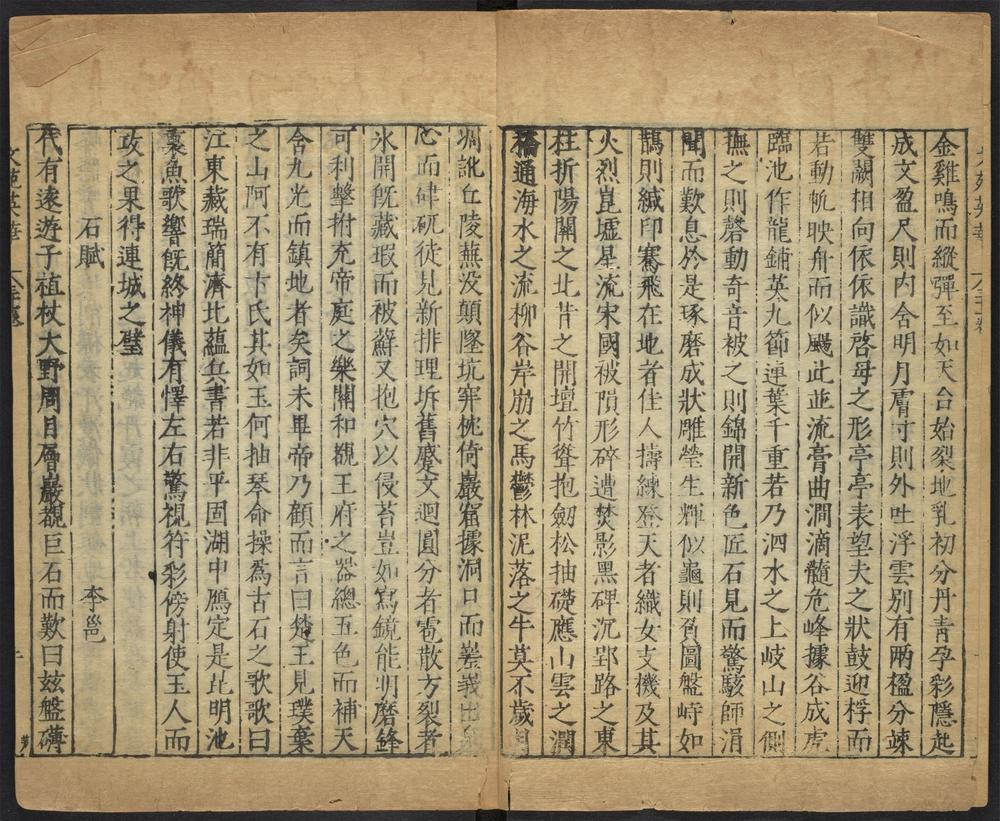 金雞鳴而縱彈至如天台始裂地乳初分丹青孕彩隱起
成文盈尺則内含明月膚寸則外吐浮雲别有兩楹分竦
雙闕相向依依識啓母之形亭亭表望夫之狀鼓迎桴而
若動帆映舟而似颺此並流膏曲澗滴髓危峰據谷成虎
臨池作龍鋪英九節連葉千重若乃泗水之上岐山之側
撫之則磬動奇音被之則錦開新色匠石見而驚駭師涓
聞而歎息於是琢磨成狀雕瑩生輝似龜則負圖盤峙如
鵲則緘印騫飛在地者佳人擣練登天者織女支機及其
火烈崑墟星流宋國被隕形碎遭焚影黑碑沉郢路之東
柱折陽關之北昔之開壇竹聳抱劒松抽礎應山雲之潤
橋通海水之流柳谷岸崩之馬鬱林泥落之牛莫不歲月
訛丘陵蕪没顛墜坑穽枕倚巖窟據洞口而
心而硉矹徒見新排理坼舊蹙文迴圓分者雹散方裂者
氷開旣藏瑕而被蘚又抱穴以侵苔豈如寫鏡能明磨鋒
可利擊拊充帝庭之樂關和觀王府之器總五色而補天
含九光而鎮地者矣詞未畢帝乃顧而言曰楚王見璞棄
之山阿不有卞氏其如玉何抽琴命操爲古石之歌歌曰
江東藏瑞簡濟北蘊兵書若非平固湖中鴈定是昆明池
裏魚歌響旣終神儀有懌左右驚視符彩傍射使玉人而
攻之果得連城之璧
石賦 李邕
代有遠遊子植杖大野周目層巖覩巨石而歎曰兹盤礴
文苑英華